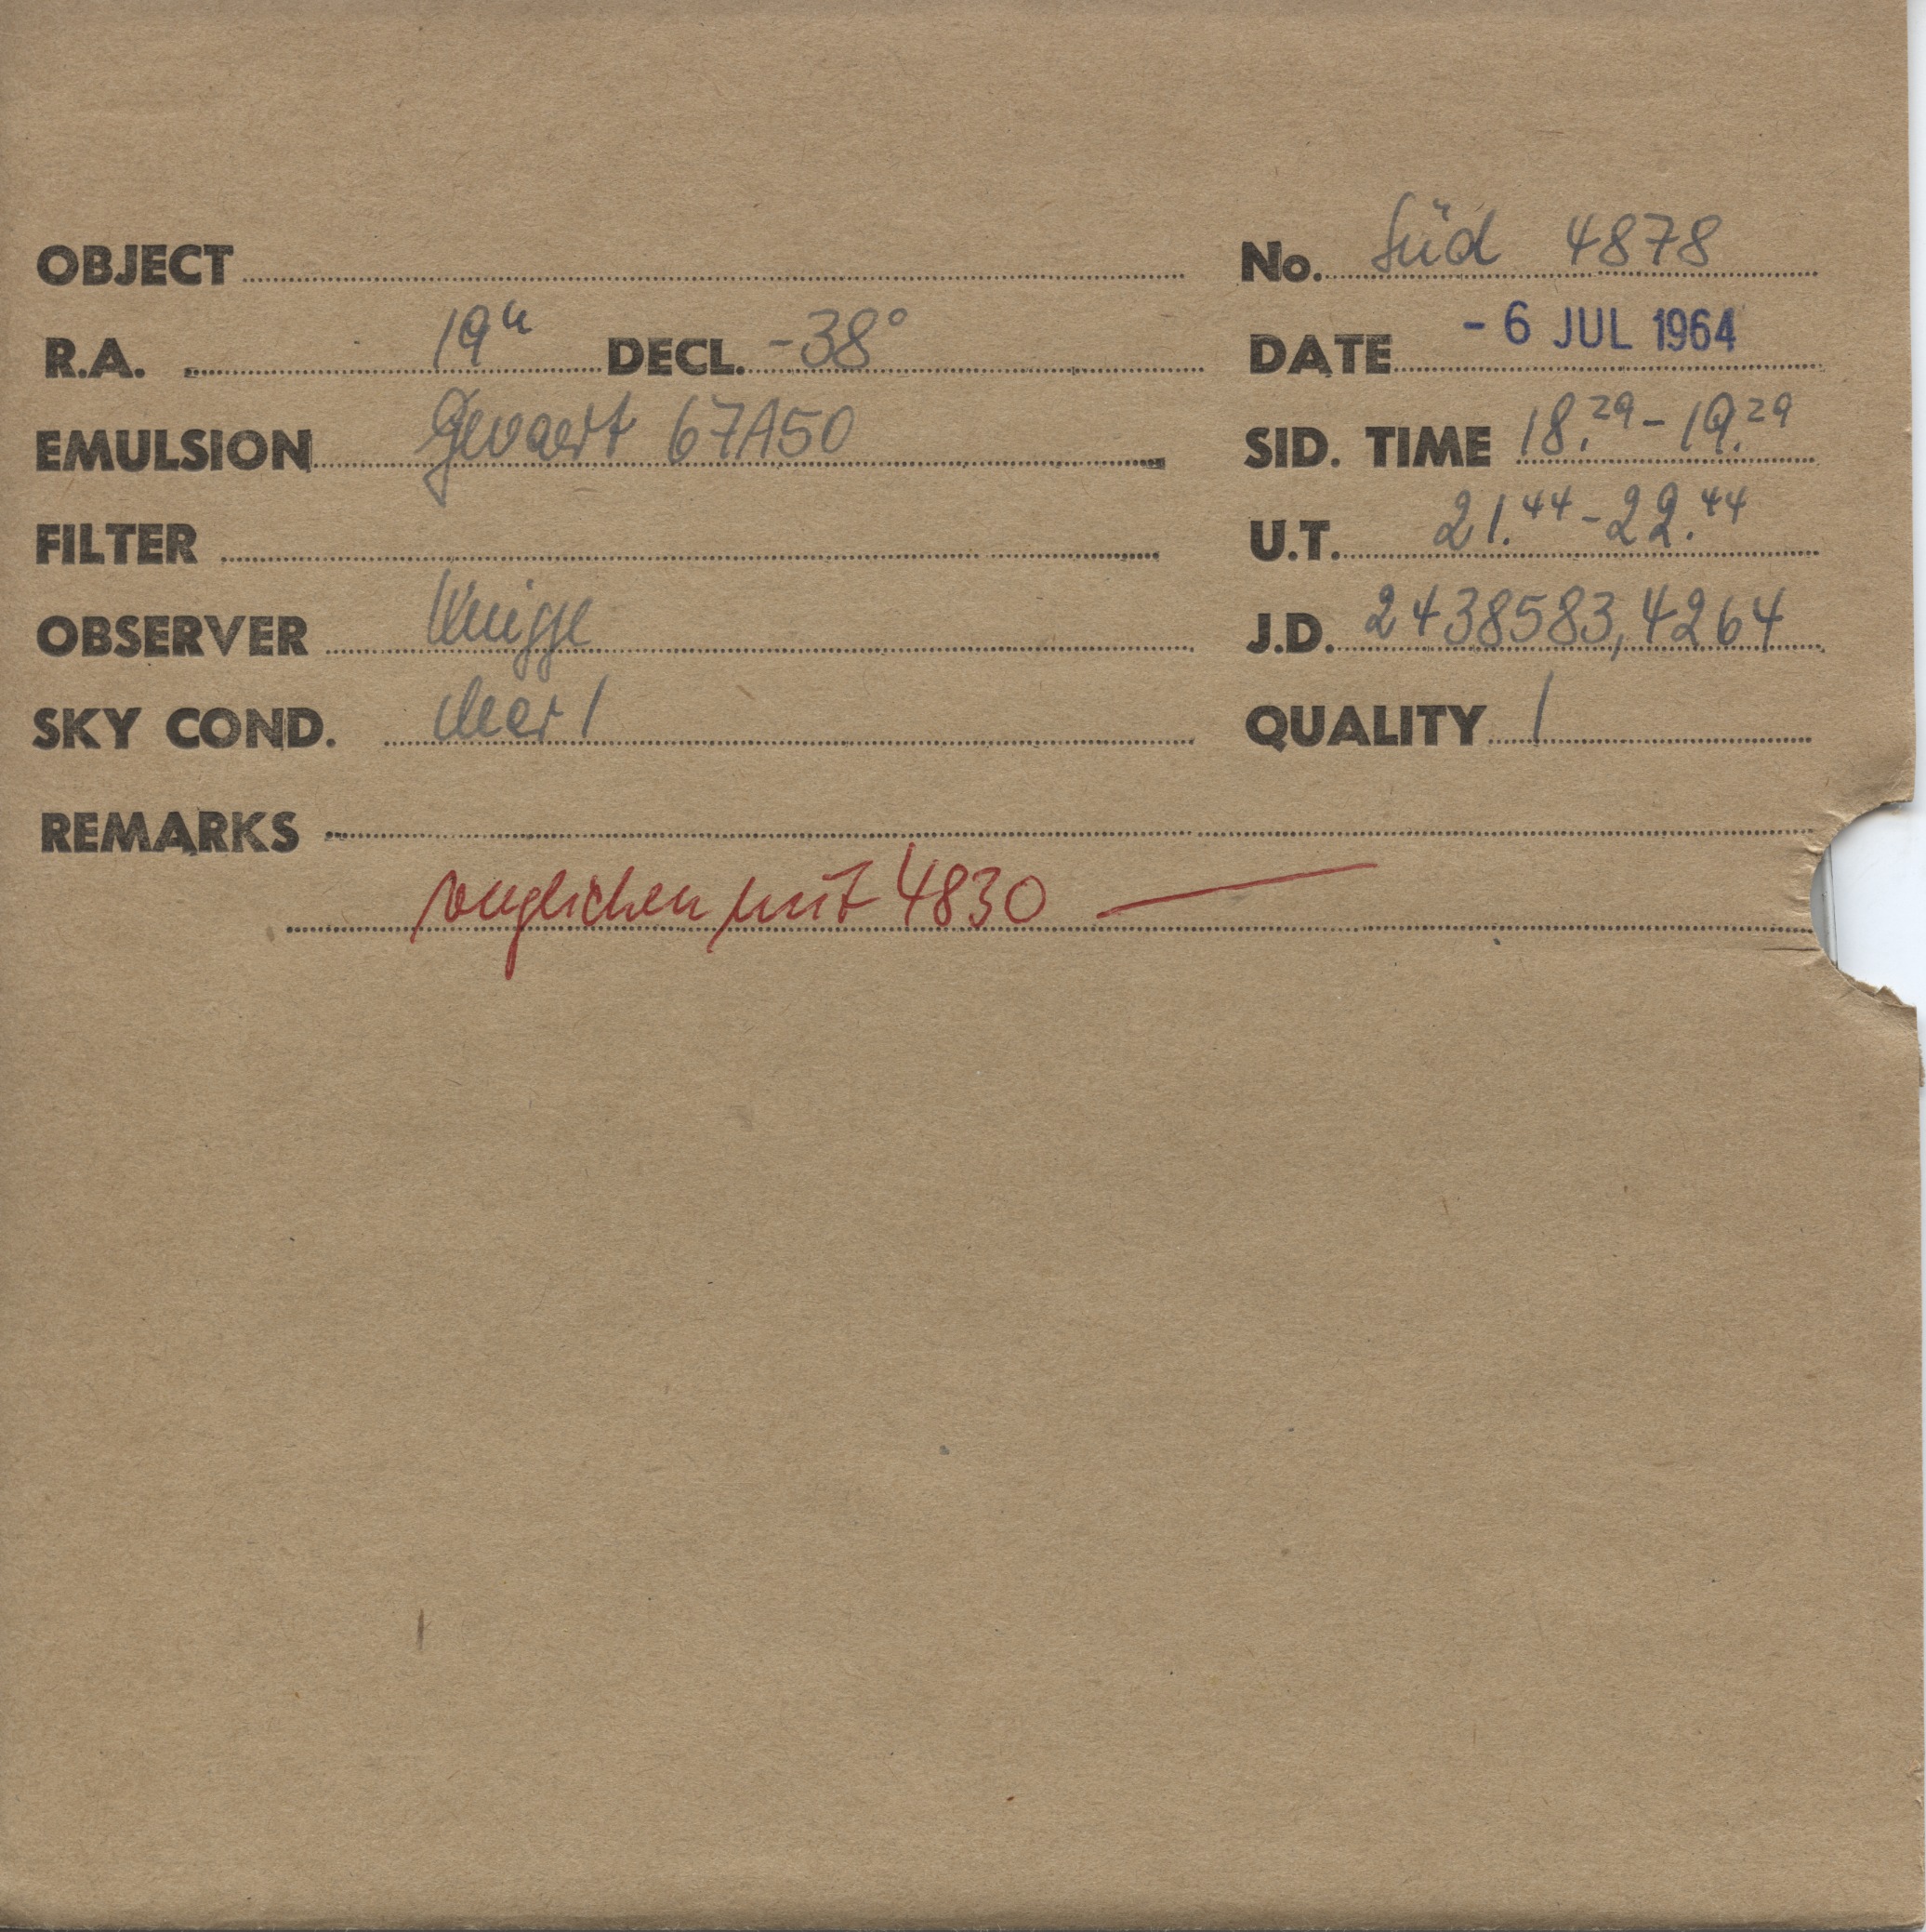 OBJECT No. Süd 4878
R.A. 19h DECL. -38° DATE - 6 JUL 1964
EMULSION Gevaert 67A50 SID. TIME 18.29 - 19.29
FILTER U.T. 21.44 - 22.44
OBSERVER Knigge J.D. 2438583,4264
SKY COND. clear 1 QUALITY 1
REMARKS
verglichen mit 4830 —